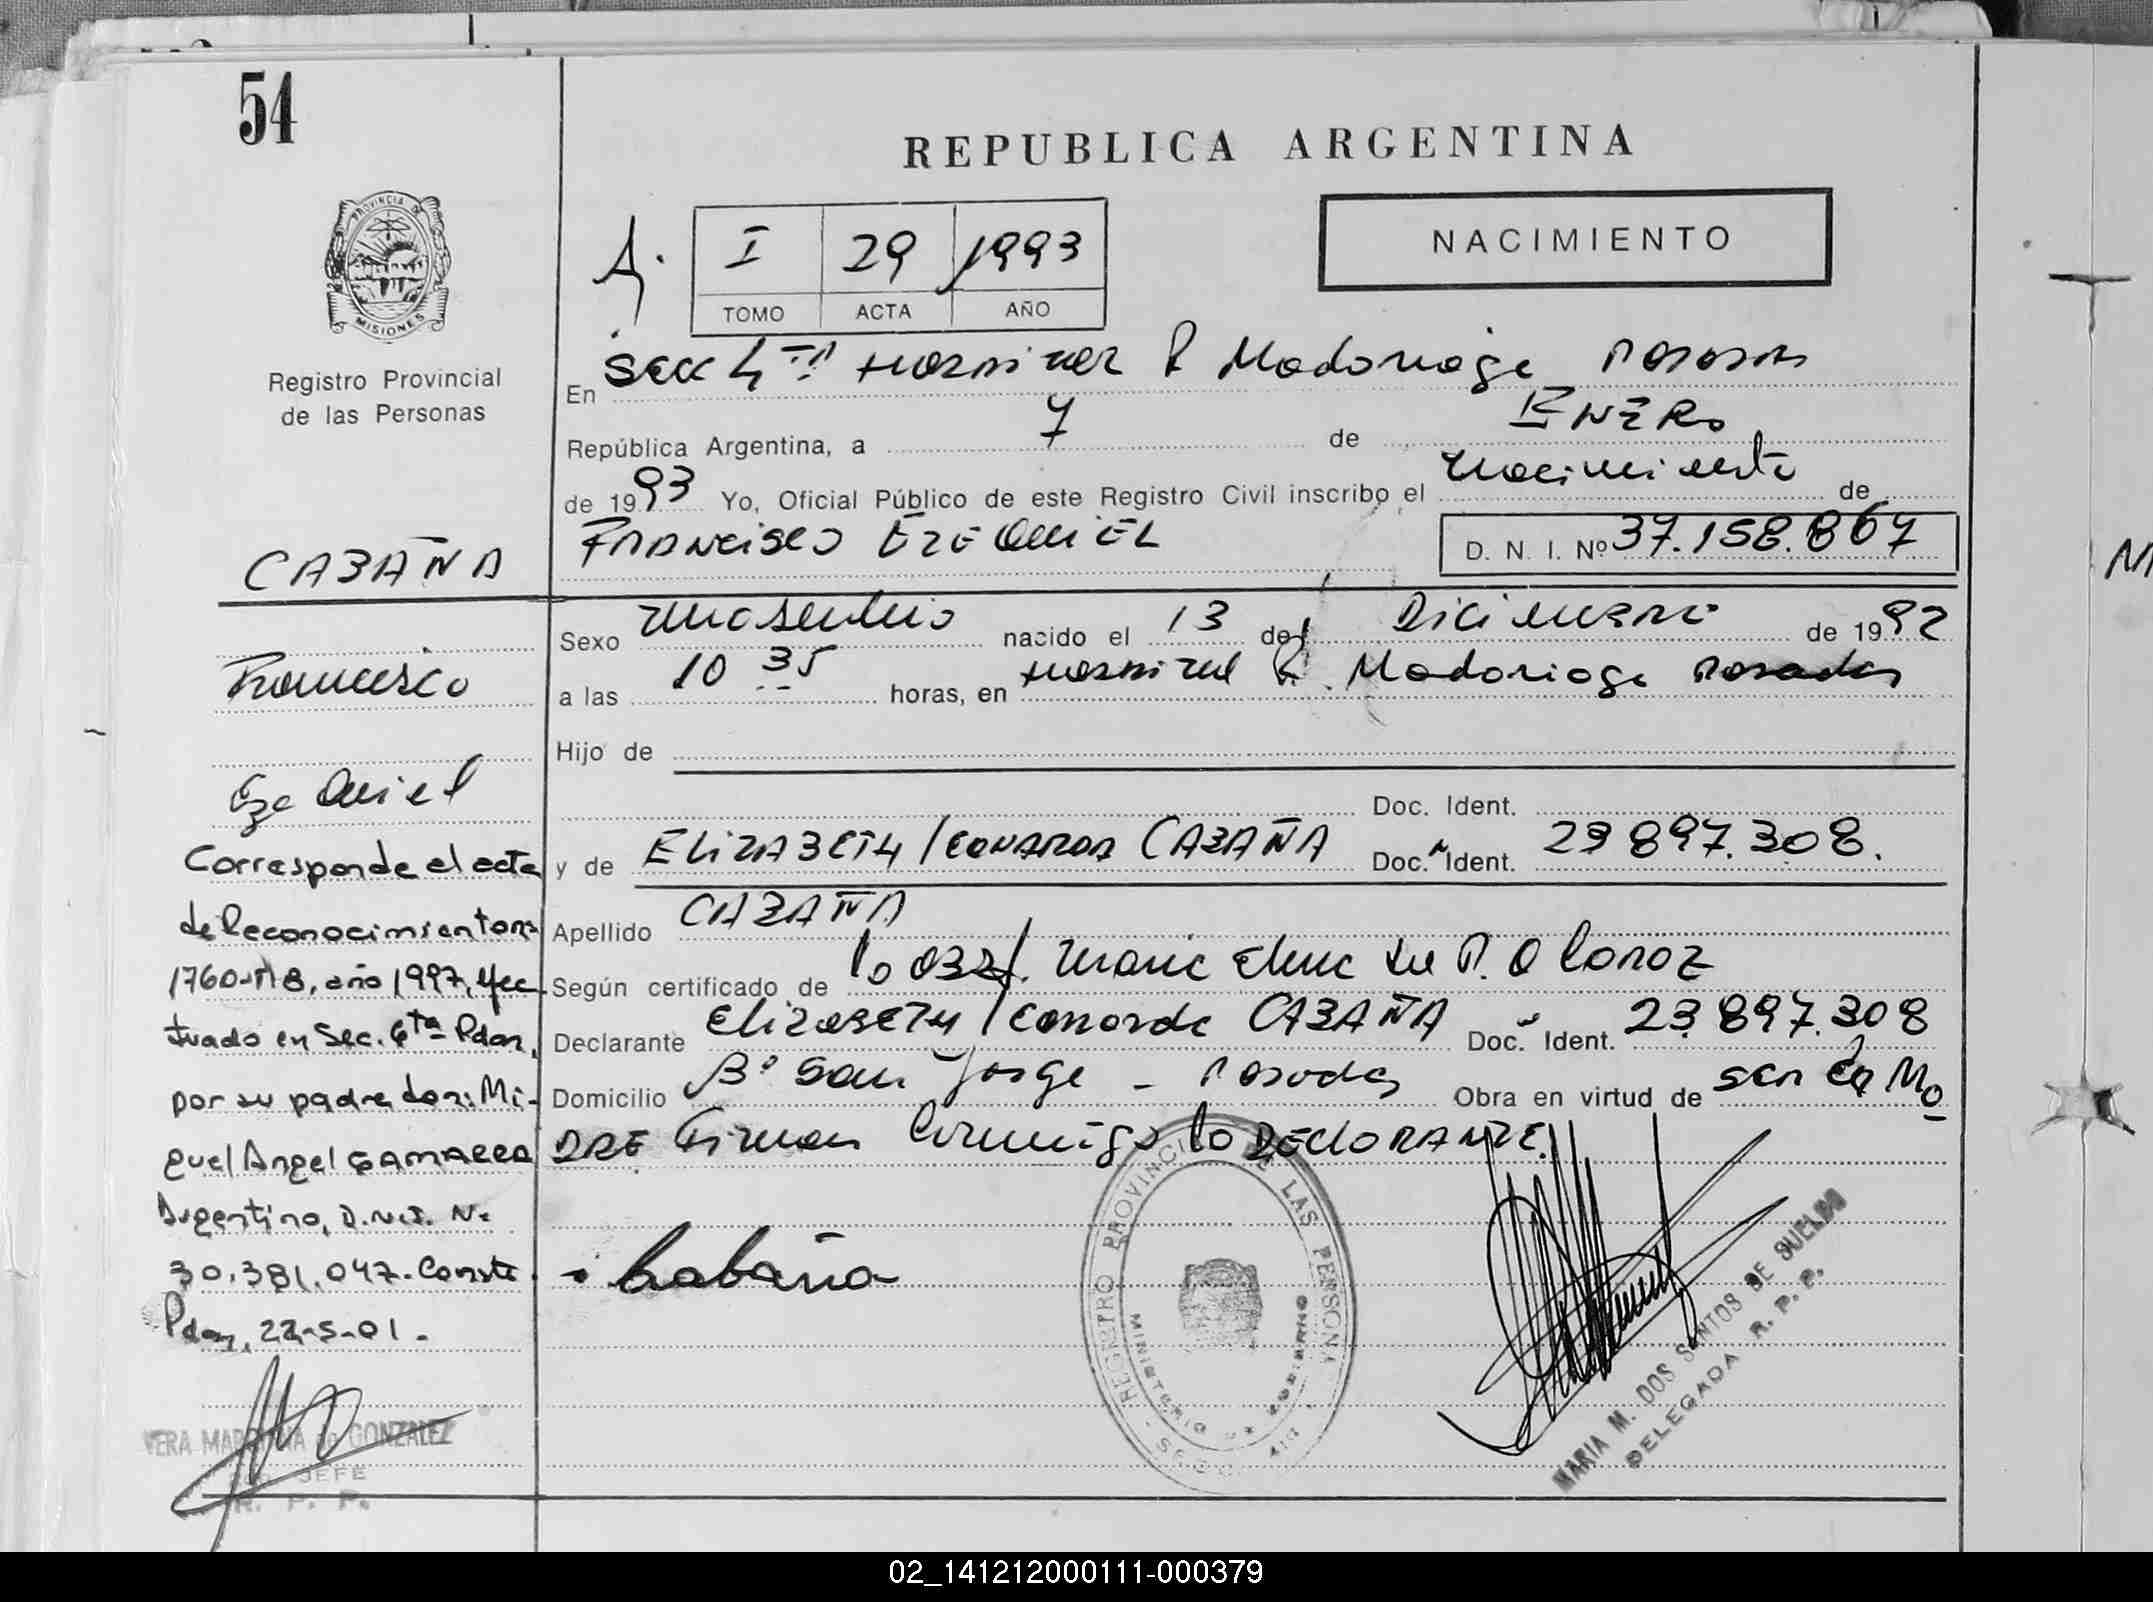 54
REPUBLICA ARGENTINA
PROVINCIA DE
MISIONES
Registro Provincial
de las Personas
I 29 1993
TOMO ACTA AÑO
NACIMIENTO
En Secc 4ta Hospital R Madariaga Posadas
República Argentina, a 7 de ENERO
de 1993 Yo, Oficial Público de este Registro Civil inscribo el nacimiento de
FRANCISCO EZEQUIEL D. N. I. Nº 37.158.867
CABAÑA
Francisco
Ezequiel
Sexo masculino nacido el 13 de Diciembre de 1992
a las 10 35 horas, en Hospital R. Madariaga Posadas
Hijo de
Doc. Ident.
y de ELIZABETH CABAÑA Doc. Ident. 23 897.308.
Apellido CABAÑA
Según certificado de
Declarante Elizabeth CABAÑA Doc. Ident. 23.897.308
Domicilio Bº San Jorge - Posadas Obra en virtud de ser la Ma
DRE Firman conmigo la DECLARANTE
Cabaña
Corresponde el acta
de Reconocimiento nº
1760-Tº 8, año 1997, efec
tuado en Sec. 6ta Pdas,
por su padre don: Mi-
guel Angel GAMARRA
Argentino, D.N.I. Nº
30.381.047. Conste.
Pdas, 22-5-01.
GONZALEZ
JEFE
R. P. P.
REGISTRO PROVINCIAL DE LAS PERSONAS
MINISTERIO GOBIERNO
MARIA M. DOS SANTOS DE SUELDO
DELEGADA R. P. P.
02_141212000111-000379